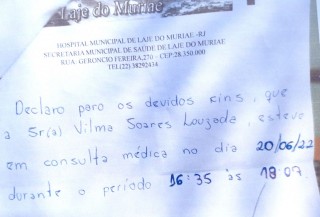 Laje do Muriaé
HOSPITAL MUNICIPAL DE LAJE DO MURIAE -RJ
SECRETARIA MUNICIPAL DE SAÚDE DE LAJE DO MURIAE
RUA GERONCIO FEREIRA,270 - CEP:28.350.000
TEL(22) 38292434
Declaro para os devidos fins, que
a Sr(a) Vilma Soares Louzada, esteve
em consulta médica no dia 20/06/22
durante o período 16:35 às 18 07